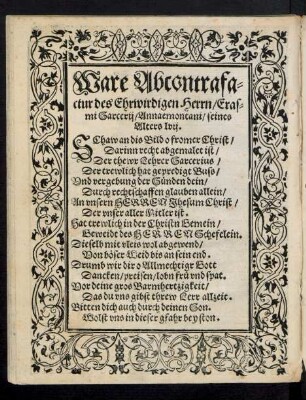 Ware Abcontrafa-
ctur des Ehrwirdigen Herrn/Eras-
mi Sarcerij/Annaemontani/seines
Alters lvij.
SChaw an dis Bild o fromer Christ/
Darinn recht abgemalet ist/
Der thewr Lehrer Sarcerius/
Der trewlich hat gepredigt Buss/
Vnd vergebung der Sünden dein/
Durch rechtschaffen glauben allein/
An vnsern HERREN Jhesum Christ/
Der vnser aller Mitler ist.
Hat trewlich in der Christn Gemein/
Geweidt des HERREN Schefelein.
Dieselb mit vleis wol abgewend/
Von böser Weid bis an sein end.
Drumb wir dir o Allmechtiger Gott
Dancken/preisen/lobn frü vnd spat.
Vor deine gros Barmhertzigkeit/
Das du vns gibst threw Lerr allzeit.
Bitten dich auch durch deinen Son.
Wolst vns in dieser gfahr beyston.